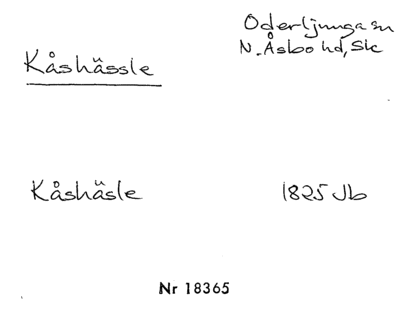 Oderljunga sn
N. Åsbo hd, Sk
Kåshässle
Kåshäsle 1825 Jb
Nr 18365